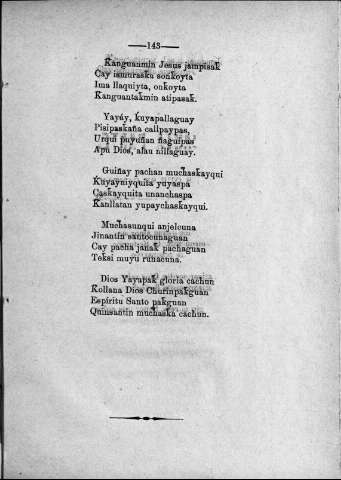 —143—
Kanguanmin Jesus jampisak̃
Cay ismuraska sonkoyta
Ima llaquiyta, onkoyta
Kanguantak̃min atipasak.
Yayáy, k̃uyapallaguay
Pisipaskaña callpaypas,
Urqui puyuñan ñaguipas
Apu Dios, alau nillaguay.
Guiñay pachan muchaskayqui
K̃uyayniyquita yuyaspa
Caskayquita unanchaspa
Kanllatan yupaychaskayqui.
Muchasunqui anjelcuna
Jinantin santocunaguan
Cay pacha janak̃ pachaguan
Teksi muyu runacuna.
Dios Yayapak̃ gloria cachun
Kollana Dios Churinpak̃guan
Espíritu Santo pak̃guan
Quinsantin muchaska cachun.